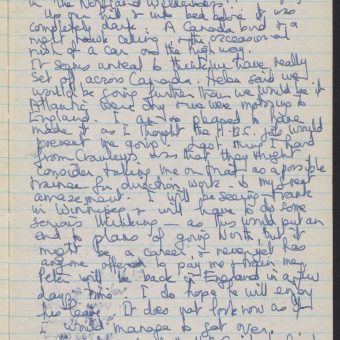 in the Northland Wilderness!!
Up our hill & into bed before it was
completely dark. A Canada bird & a
calling & the occasional
of a car on the highway.
It seems unreal to think we have really
set off across Canada. Helen said we
would be going further than we would be if
Atlantic were dry & we were motoring to
England. I am so pleased to have
made it as I thought the H.B.C. jobs would
prevent me going. Last thing I heard
from Crawleys was that they might
consider taking me on that as a possible
trainee for direction work - to my great
amazement. I will be seeing Frank
in Winnipeg & will have to do some
serious thinking - as this would put an
end to plans of going North, but it
might be a career, & never yet has
anyone offered to pay me & train me.
Peter will be back in England in a few
days time. I do hope he will enjoy
his leave. It does not look now as if
I would manage to get over.